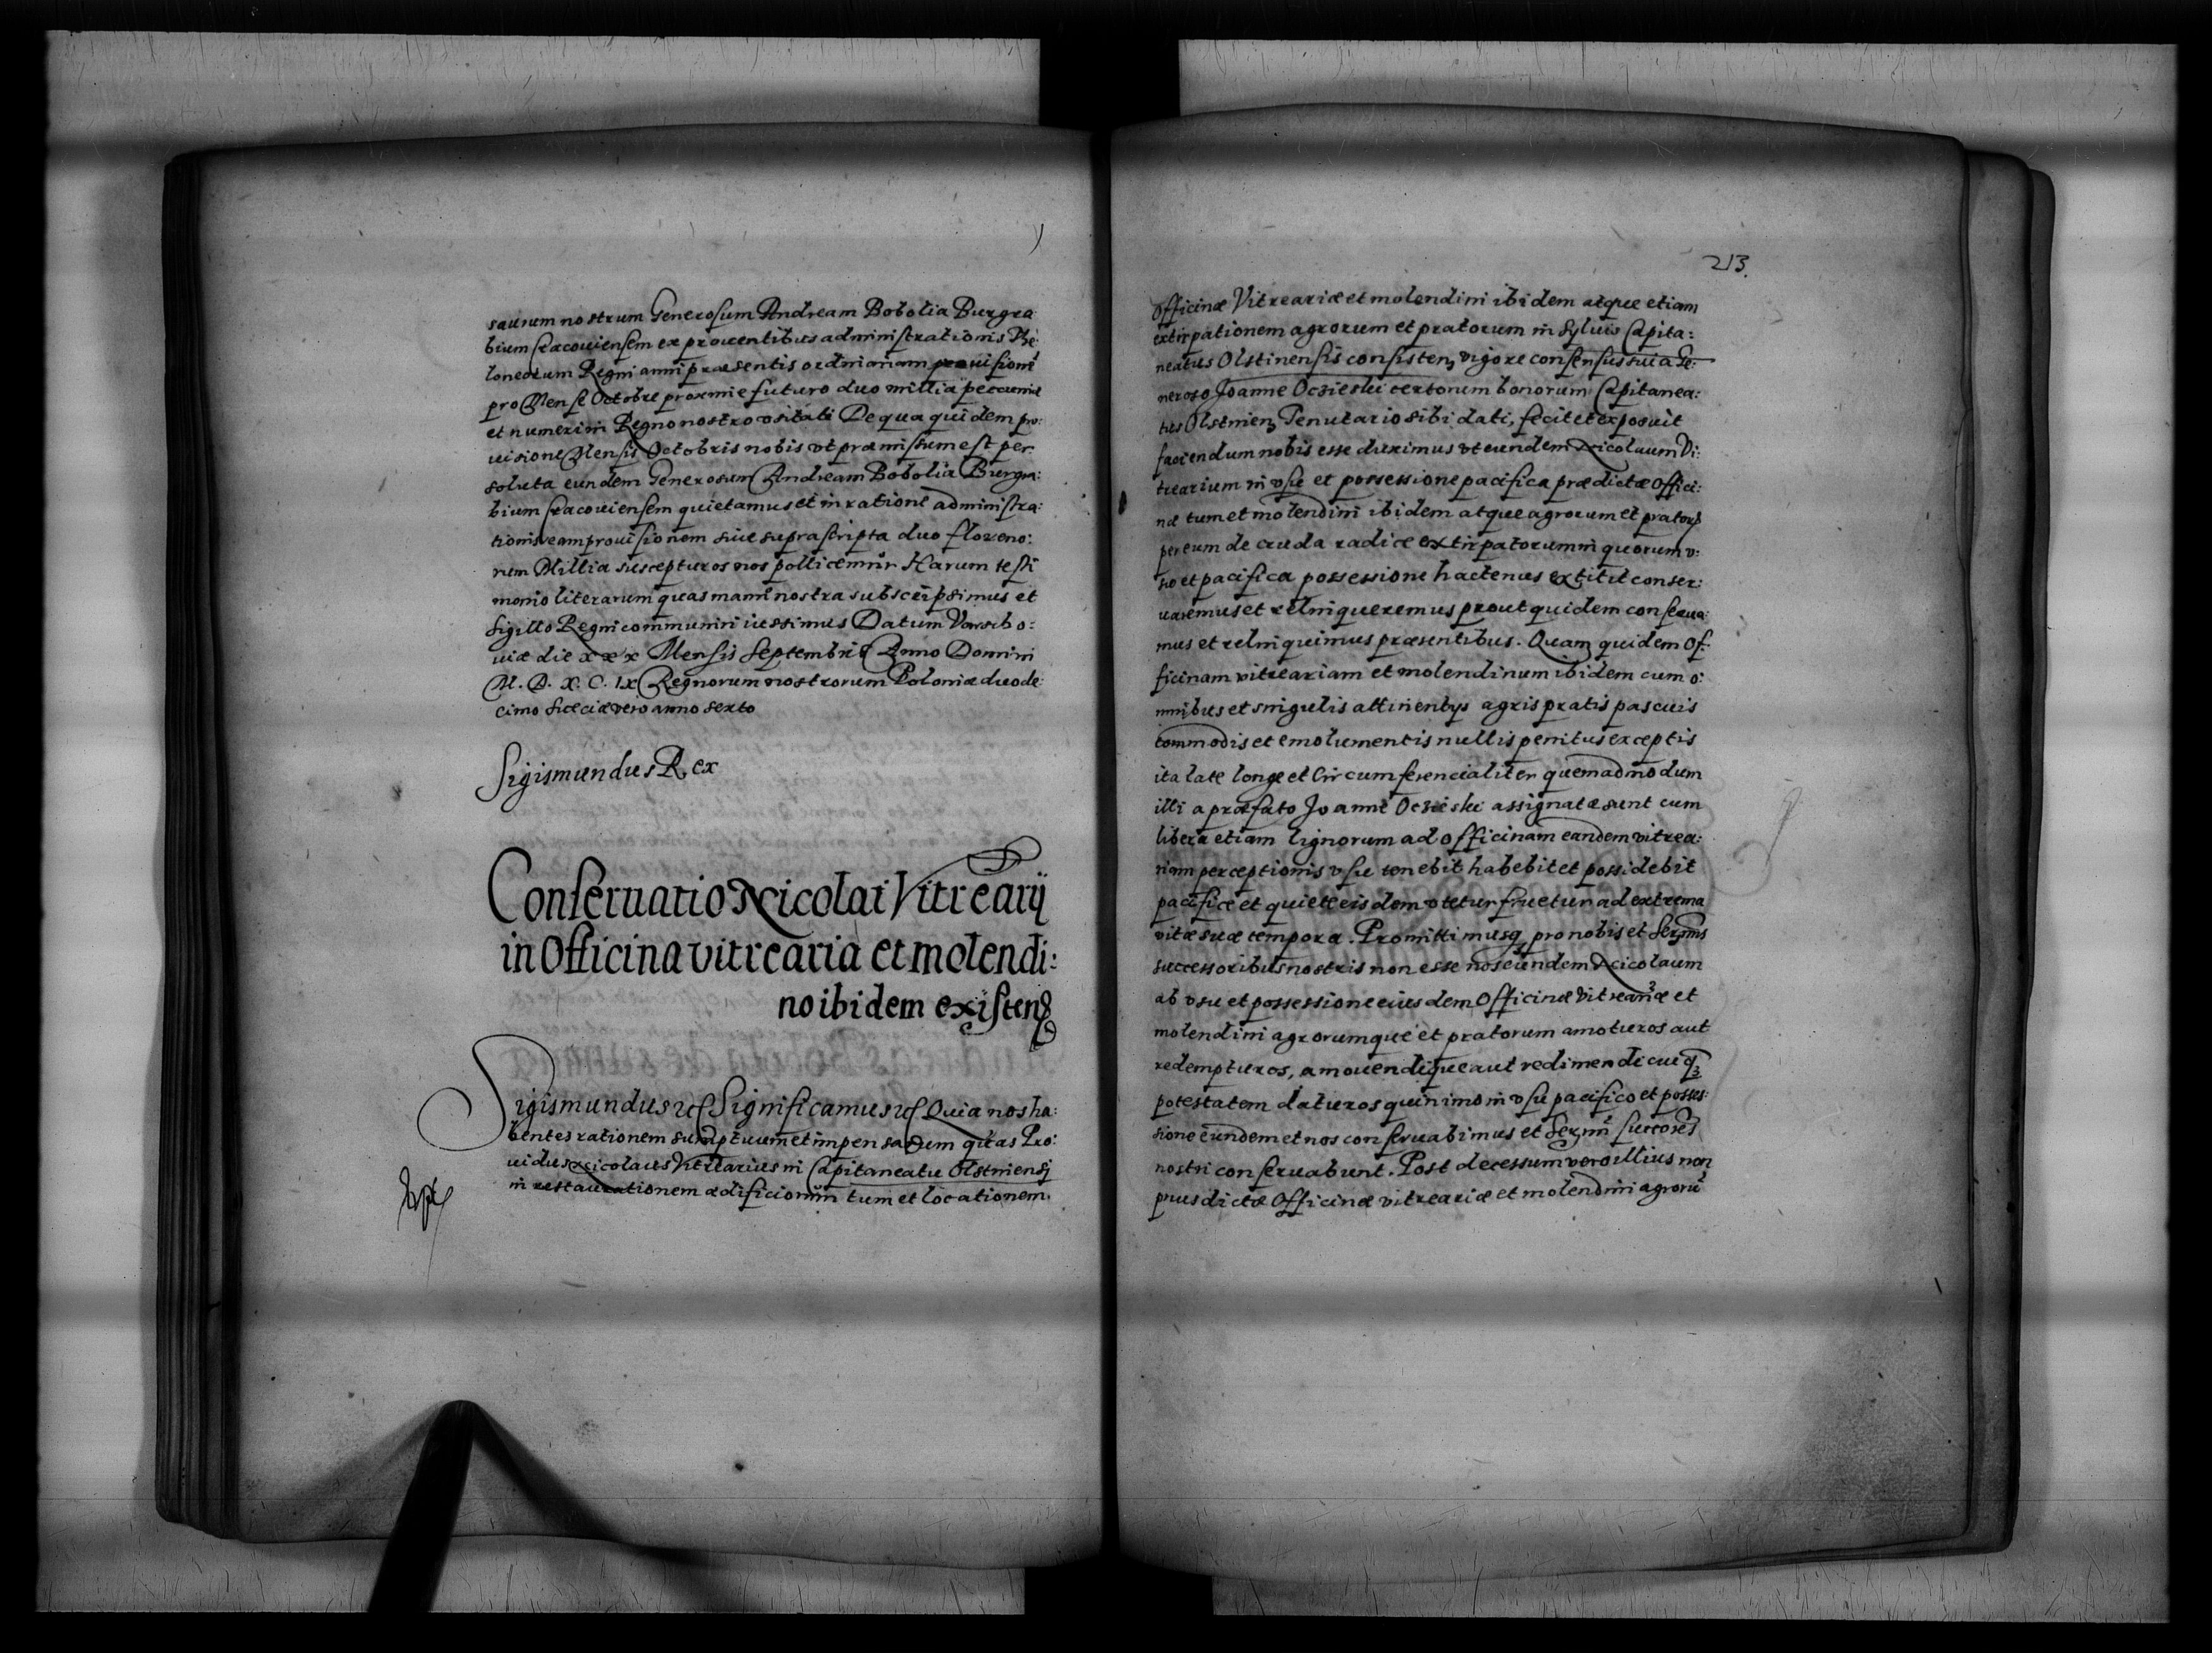 saurum nostrum Generosum Andream Bobolia Burgra
bium Cracouiensem ex prouentibus administrationis The:
loneorum Regni anni praesentis ordinariam prouisione
pro Mense Octobre proxime futuro duo millia pecuniæ
et numeri in Regno nostro vsitati De qua quidem pro:
uisione Mensis Octobris nobis vt præmissum est per
soluta eundem Generosum Andream Bobolia Burgra:
bium Cracouiensem quietamus et in ratione administra:
tionis eam prouisionem siue suprascripta duo floreno:
rum Millia suscepturos nos pollicemur Harum testi
monio literarum quas manu nostra subscripsimus et
sigillo Regni communiri iussimus Datum Varsbo:
uiæ die xxx Mensis Septembris Anno Domini
M. D. X. C. IX Regnorum nostrorum Poloniæ duode:
cimo Sueciæ vero anno sexto
Sigismundus Rex
Conseruatio Nicolai Vitrearij
in Officina vitrearia et molendi:
no ibidem existen
Sigismundus Significamus Quia nos ha:
bentes rationem sumptuum et impensarum quas Pro:
uidus Nicolaus Vitrearius in Capitaneatu Olstinensi
in restaurationem ædificiorum tum et locationem
213.
Officinæ Vitreariæ et molendini ibidem atque etiam
extirpationem agrorum et pratorum in Syluis Capita:
neatus Olstinensis consisten vigore consensus sui a Ge:
neroso Joanne Oczieski certorum bonorum Capitanea:
tus Olstinen Tenutario sibi dati, fecit et exposuit
faciendum nobis esse duximus vt eundem Nicolaum Vi:
trearium in vsu et possessione pacifica prædictæ Offici:
næ tum et molendini ibidem atque agrorum et pratorum
per eum de cruda radice extirpatorum in quorum v:
su et pacifica possessione hactenus extitit conser:
uaremus et relinqueremus prout quidem conserua:
mus et relinquimus præsentibus. Quam quidem Of:
ficinam vitreariam et molendinum ibidem cum o:
mnibus et singulis attinentijs agris pratis pascuis
commodis et emolumentis nullis penitus exceptis
ita late longe et Circumferencialiter quemadmodum
illi a præfato Joanne Oczieski assignatæ sunt cum
libera etiam lignorum ad officinam eandem vitrea:
riam perceptionis vsu tenebit habebit et possidebit
pacifice et quiete eisdem vtetur fruetur ad extrema
vitæ suæ tempora. Promittimusq pro nobis et Serenmis
successoribus nostris non esse nos eundem Nicolaum
ab vsu et possessione eiusdem Officinæ Vitreariæ et
molendini agrorumque et pratorum amoturos aut
redempturos, amouendique aut redimendi cuiq
potestatem daturos quin imo in vsu pacifico et posses:
sione eundem et nos conseruabimus et Serenmi succores
nostri conseruabunt. Post decessum vero illius non
prius dictæ Officinæ vitreariæ et molendini agroru